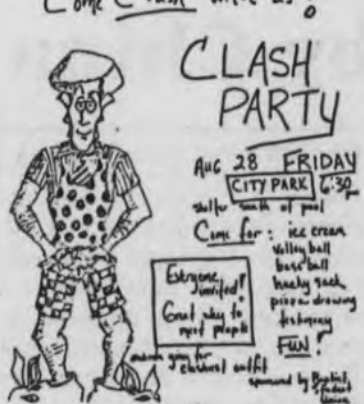 Come Clash with us!
CLASH
PARTY
AUG 28 FRIDAY
CITY PARK 6:30
shelter south of pool
Come for: ice cream
volleyball
baseball
hacky sack
pizza drawing
testimony
FUN!
Everyone
invited!
Great way to
meet people
going for
clashiest outfit
sponsored by Baptist
Student
Union